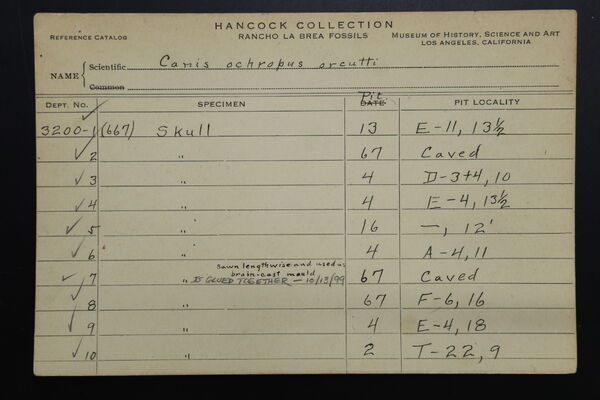 HANCOCK COLLECTION
REFERENCE CATALOG RANCHO LA BREA FOSSILS MUSEUM OF HISTORY, SCIENCE AND ART
LOS ANGELES, CALIFORNIA
NAME { Scientific Canis ochropus orcutti
Common
Pit
DEPT. NO. SPECIMEN DATE PIT LOCALITY
3200-1 (667) Skull 13 E-11, 13½
✓ 2 " 67 Caved
✓ 3 " 4 D-3+4, 10
✓ 4 " 4 E-4, 13½
✓ 5 " 16 —, 12'
✓ 6 " 4 A-4, 11
sawn lengthwise and used as
brain-cast mould
✓ 7 " IS GLUED TOGETHER - 10/13/99 67 Caved
✓ 8 " 67 F-6, 16
✓ 9 " 4 E-4, 18
✓ 10 " 2 T-22, 9